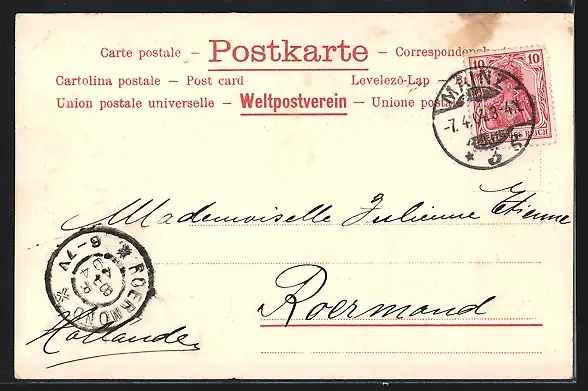 Carte postale – Postkarte – Correspondenzkarte
Cartolina postale – Post card Levelező-Lap –
Union postale universelle – Weltpostverein – Unione postale
10 10
DEUTSCHES REICH
MAINZ
-7.4.04. 3-4N.
* 3
Mademoiselle Julienne Etienne
Roermond
Hollande
ROERMOND
8 APR 04
6-7V